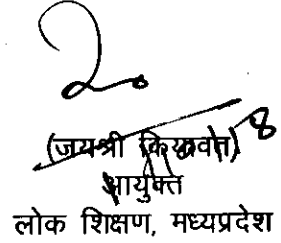 (जयश्री कियावत)
आयुक्त
लोक शिक्षण, मध्यप्रदेश